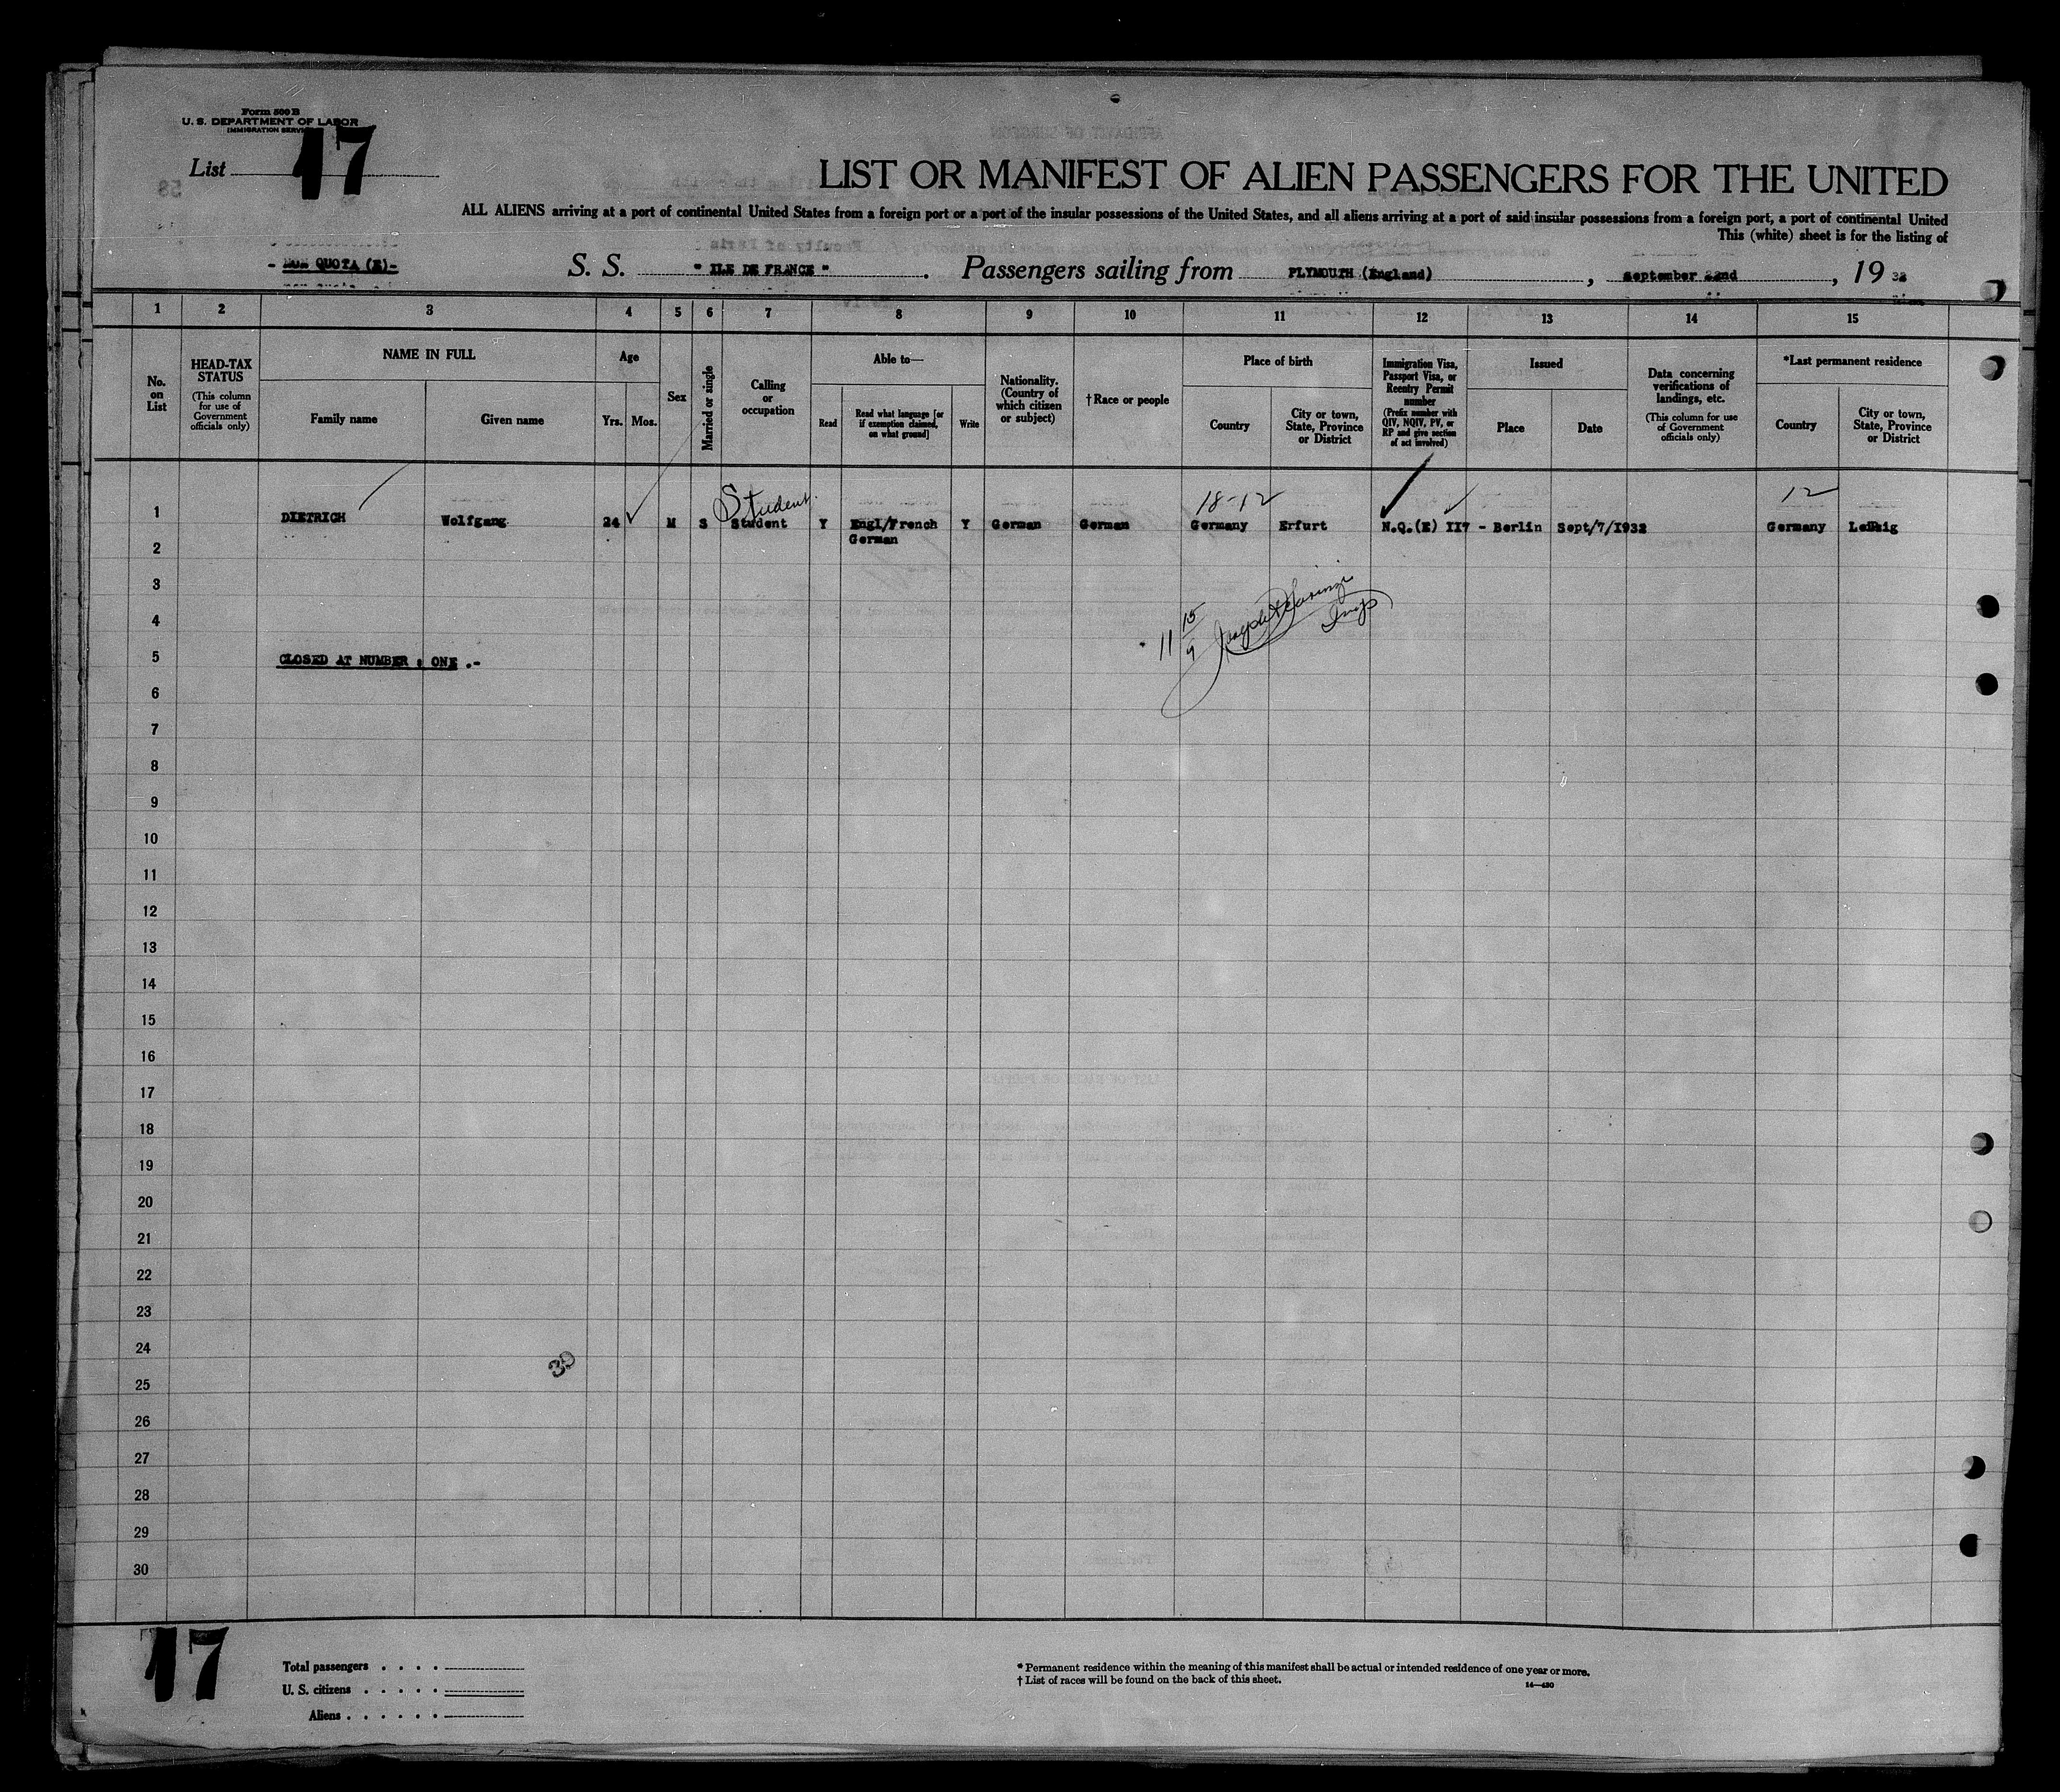 Form 500 B
U. S. DEPARTMENT OF LABOR
IMMIGRATION SERVICE
List 17
LIST OR MANIFEST OF ALIEN PASSENGERS FOR THE UNITED
ALL ALIENS arriving at a port of continental United States from a foreign port or a port of the insular possessions of the United States, and all aliens arriving at a port of said insular possessions from a foreign port, a port of continental United
This (white) sheet is for the listing of
- NON QUOTA (E)-
S. S. " ILE DE FRANCE " . Passengers sailing from PLYMOUTH (England) , September 22nd , 19 32
1 2 3 4 5 6 7 8 9 10 11 12 13 14 15
No. on List
HEAD-TAX STATUS
(This column for use of Government officials only)
NAME IN FULL
Family name
Given name
Age
Yrs. Mos.
Sex
Married or single
Calling or occupation
Able to—
Read
Read what language [or if exemption claimed, on what ground]
Write
Nationality. (Country of which citizen or subject)
†Race or people
Place of birth
Country
City or town, State, Province or District
Immigration Visa, Passport Visa, or Reentry Permit number
(Prefix number with QIV, NQIV, PV, or RP and give section of act involved)
Issued
Place
Date
Data concerning verifications of landings, etc.
(This column for use of Government officials only)
*Last permanent residence
Country
City or town, State, Province or District
Student 18-12 12
1 DIETRICH Wolfgang 24 M S Student Y Engl/French Y German German Germany Erfurt N.Q.(E) 117 - Berlin Sept/7/1932 Germany Leipzig
German
2
3
4
11 15/9 Insp
5 CLOSED AT NUMBER : ONE .-
6
7
8
9
10
11
12
13
14
15
16
17
18
19
20
21
22
23
24
30
25
26
27
28
29
30
17
Total passengers . . . .
U. S. citizens . . . . .
Aliens . . . . . .
* Permanent residence within the meaning of this manifest shall be actual or intended residence of one year or more.
† List of races will be found on the back of this sheet.
14—430